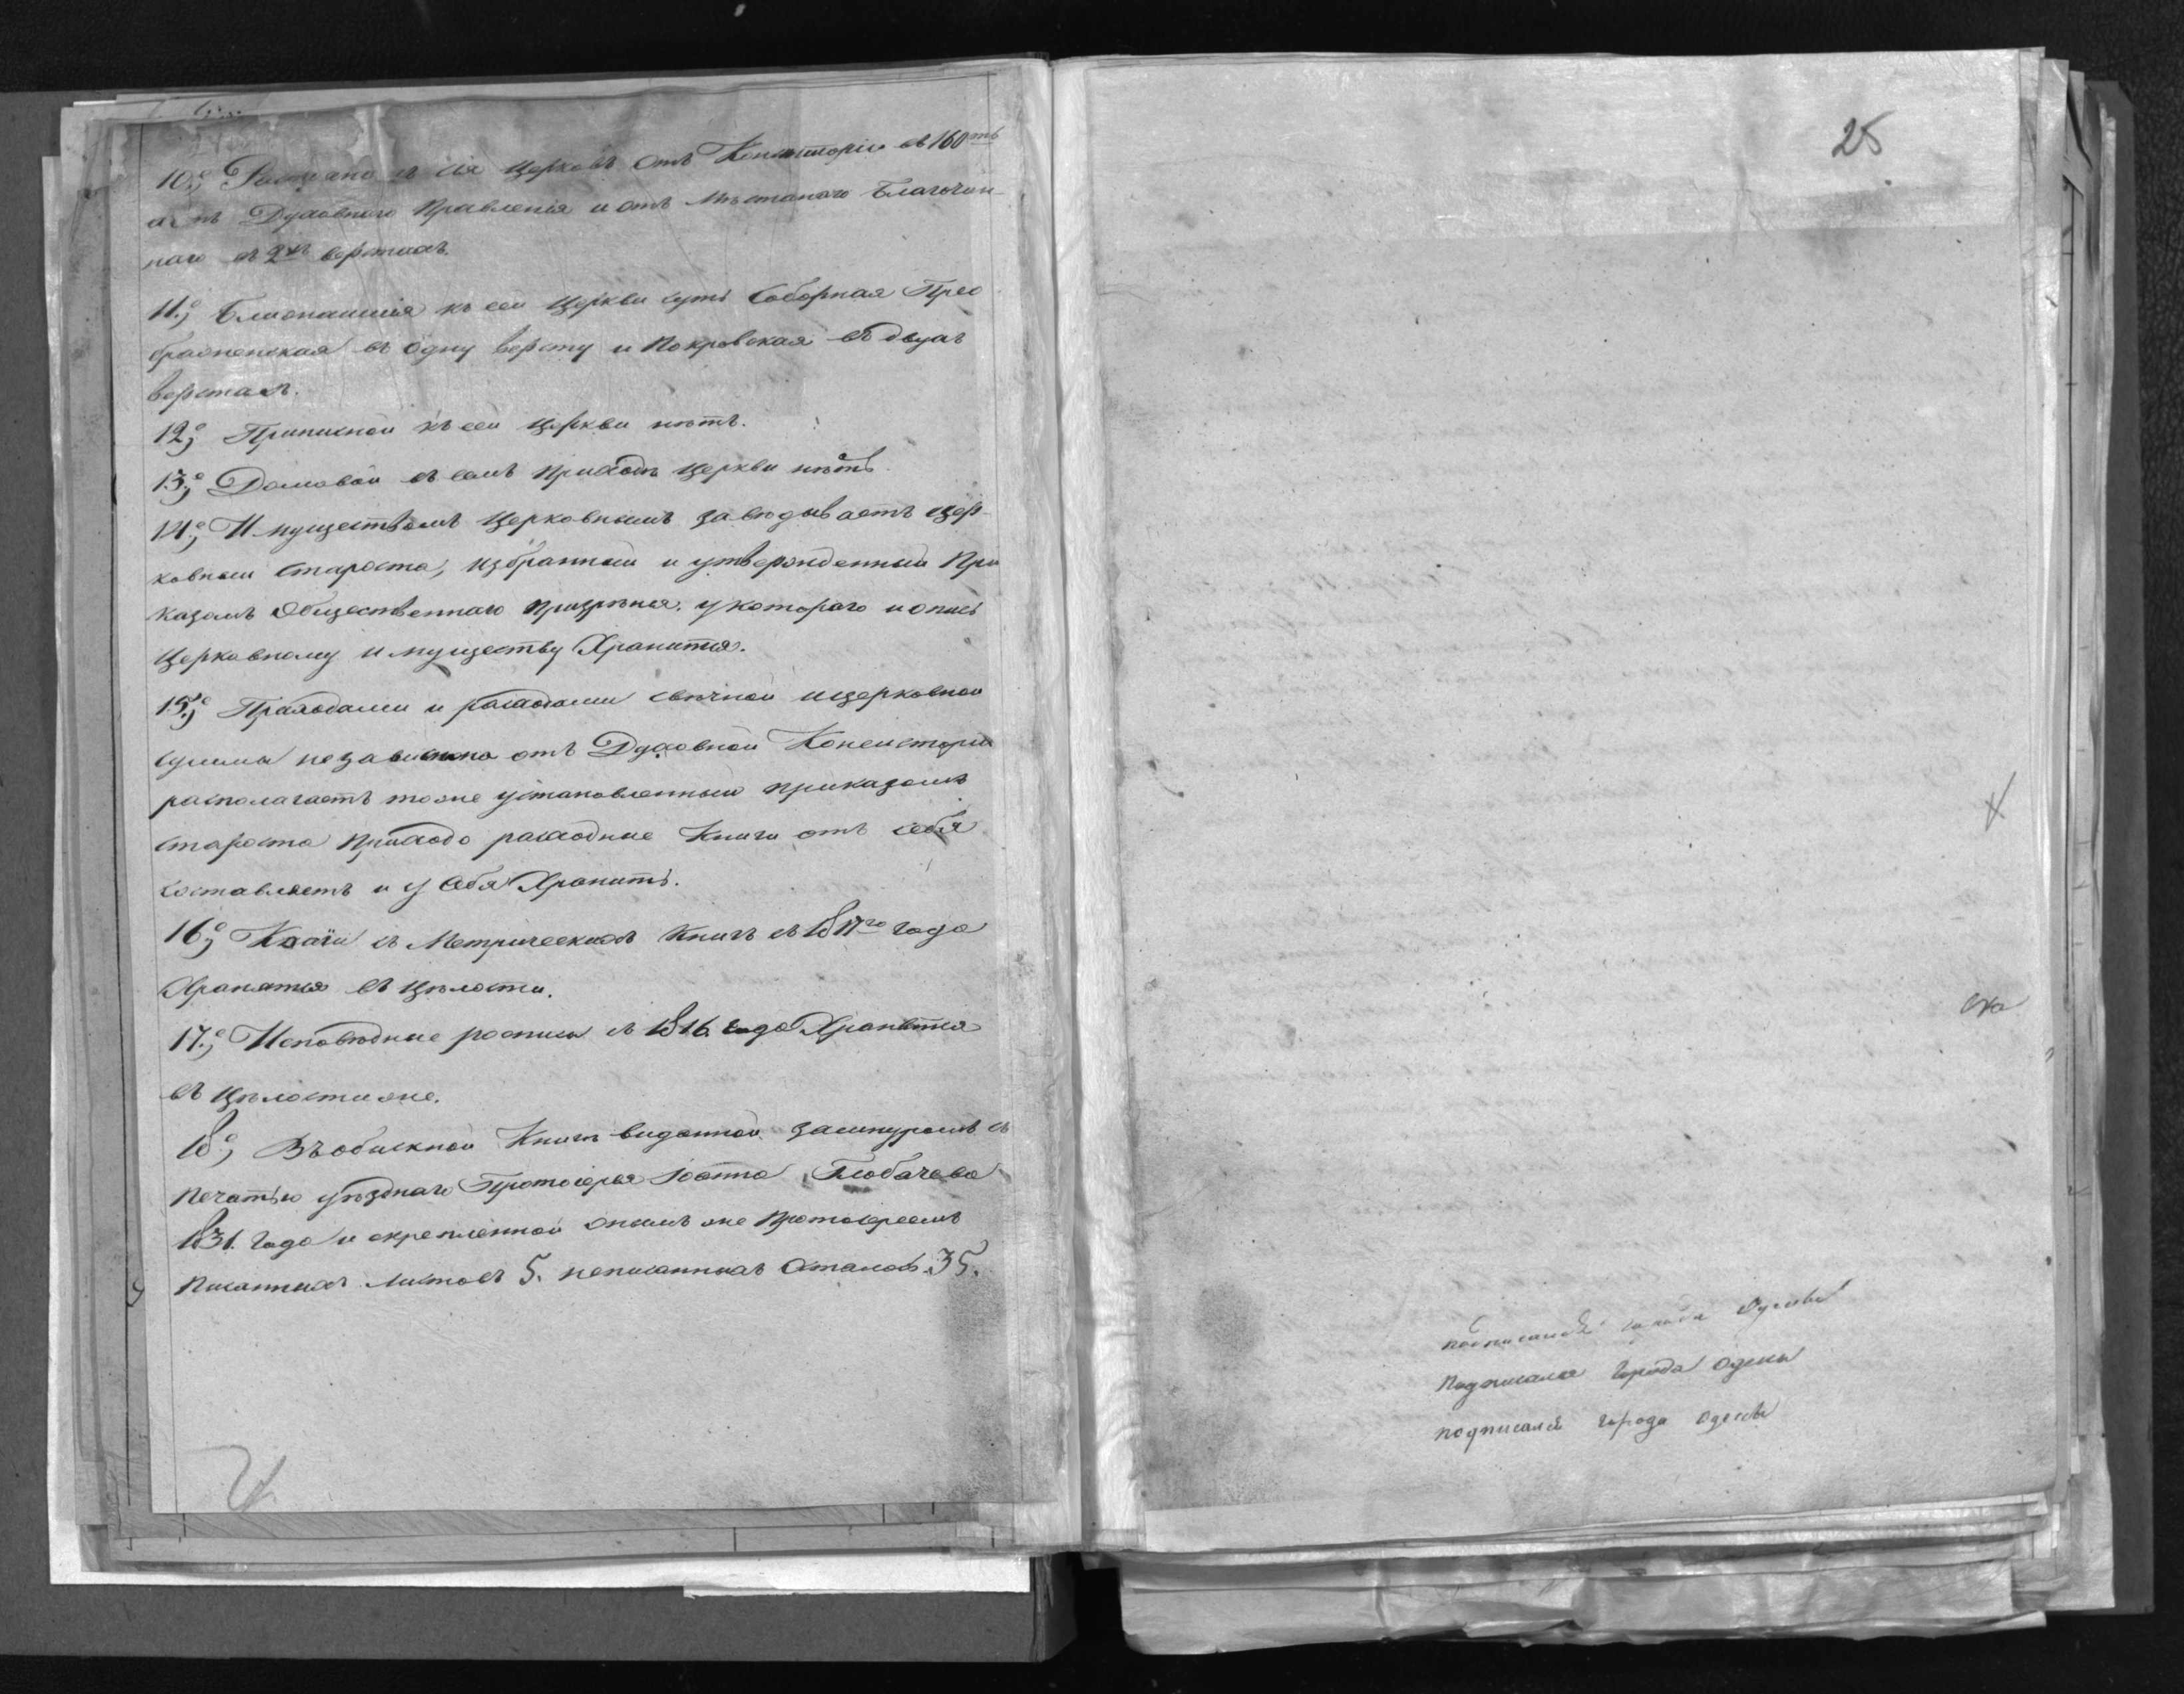 10.е Растояніе сія церковь отъ Консисторіи въ 160ть
а отъ Духовнаго Правленія и отъ Мѣстнаго Благочин-
наго въ 2хъ верстахъ.
11.е Ближайшія къ сей церкви суть Соборная Прео
браженская въ одну версту и Покровская въ двухъ
верстахъ.
12.е Приписной къ сей церкви нѣтъ.
13.е Домовой въ семъ приходѣ церкви нѣтъ.
14.е Имуществомъ церковнымъ завѣдываетъ цер-
ковный староста, избранный и утвержденный При
казомъ Общественнаго призрѣнія, у котораго и опись
церковному имуществу хранится.
15.е Приходами и расходами свѣчной и церковной
суммы независимо отъ Духовной Консисторіи
располагаетъ тоже установленный приказомъ
староста приходо расходные книги отъ себя
составляетъ и у себя хранитъ.
16.е Копіи съ Метрическихъ книгъ съ 1817го года
хранятся въ цѣлости.
17.е Исповѣдные росписи съ 1816. года хранятся
въ цѣлости же.
18.е Въ обыскной книгѣ виданной за шнуромъ и
печатью уѣзднаго Протоіерея Іоанна Глобачева
1831. года и скрепленной онымъ же протоіереемъ
писанныхъ листовъ 5. неписанныхъ осталось 35.
25
подписался города Одессы
подписался города Одессы
подписался города Одессы